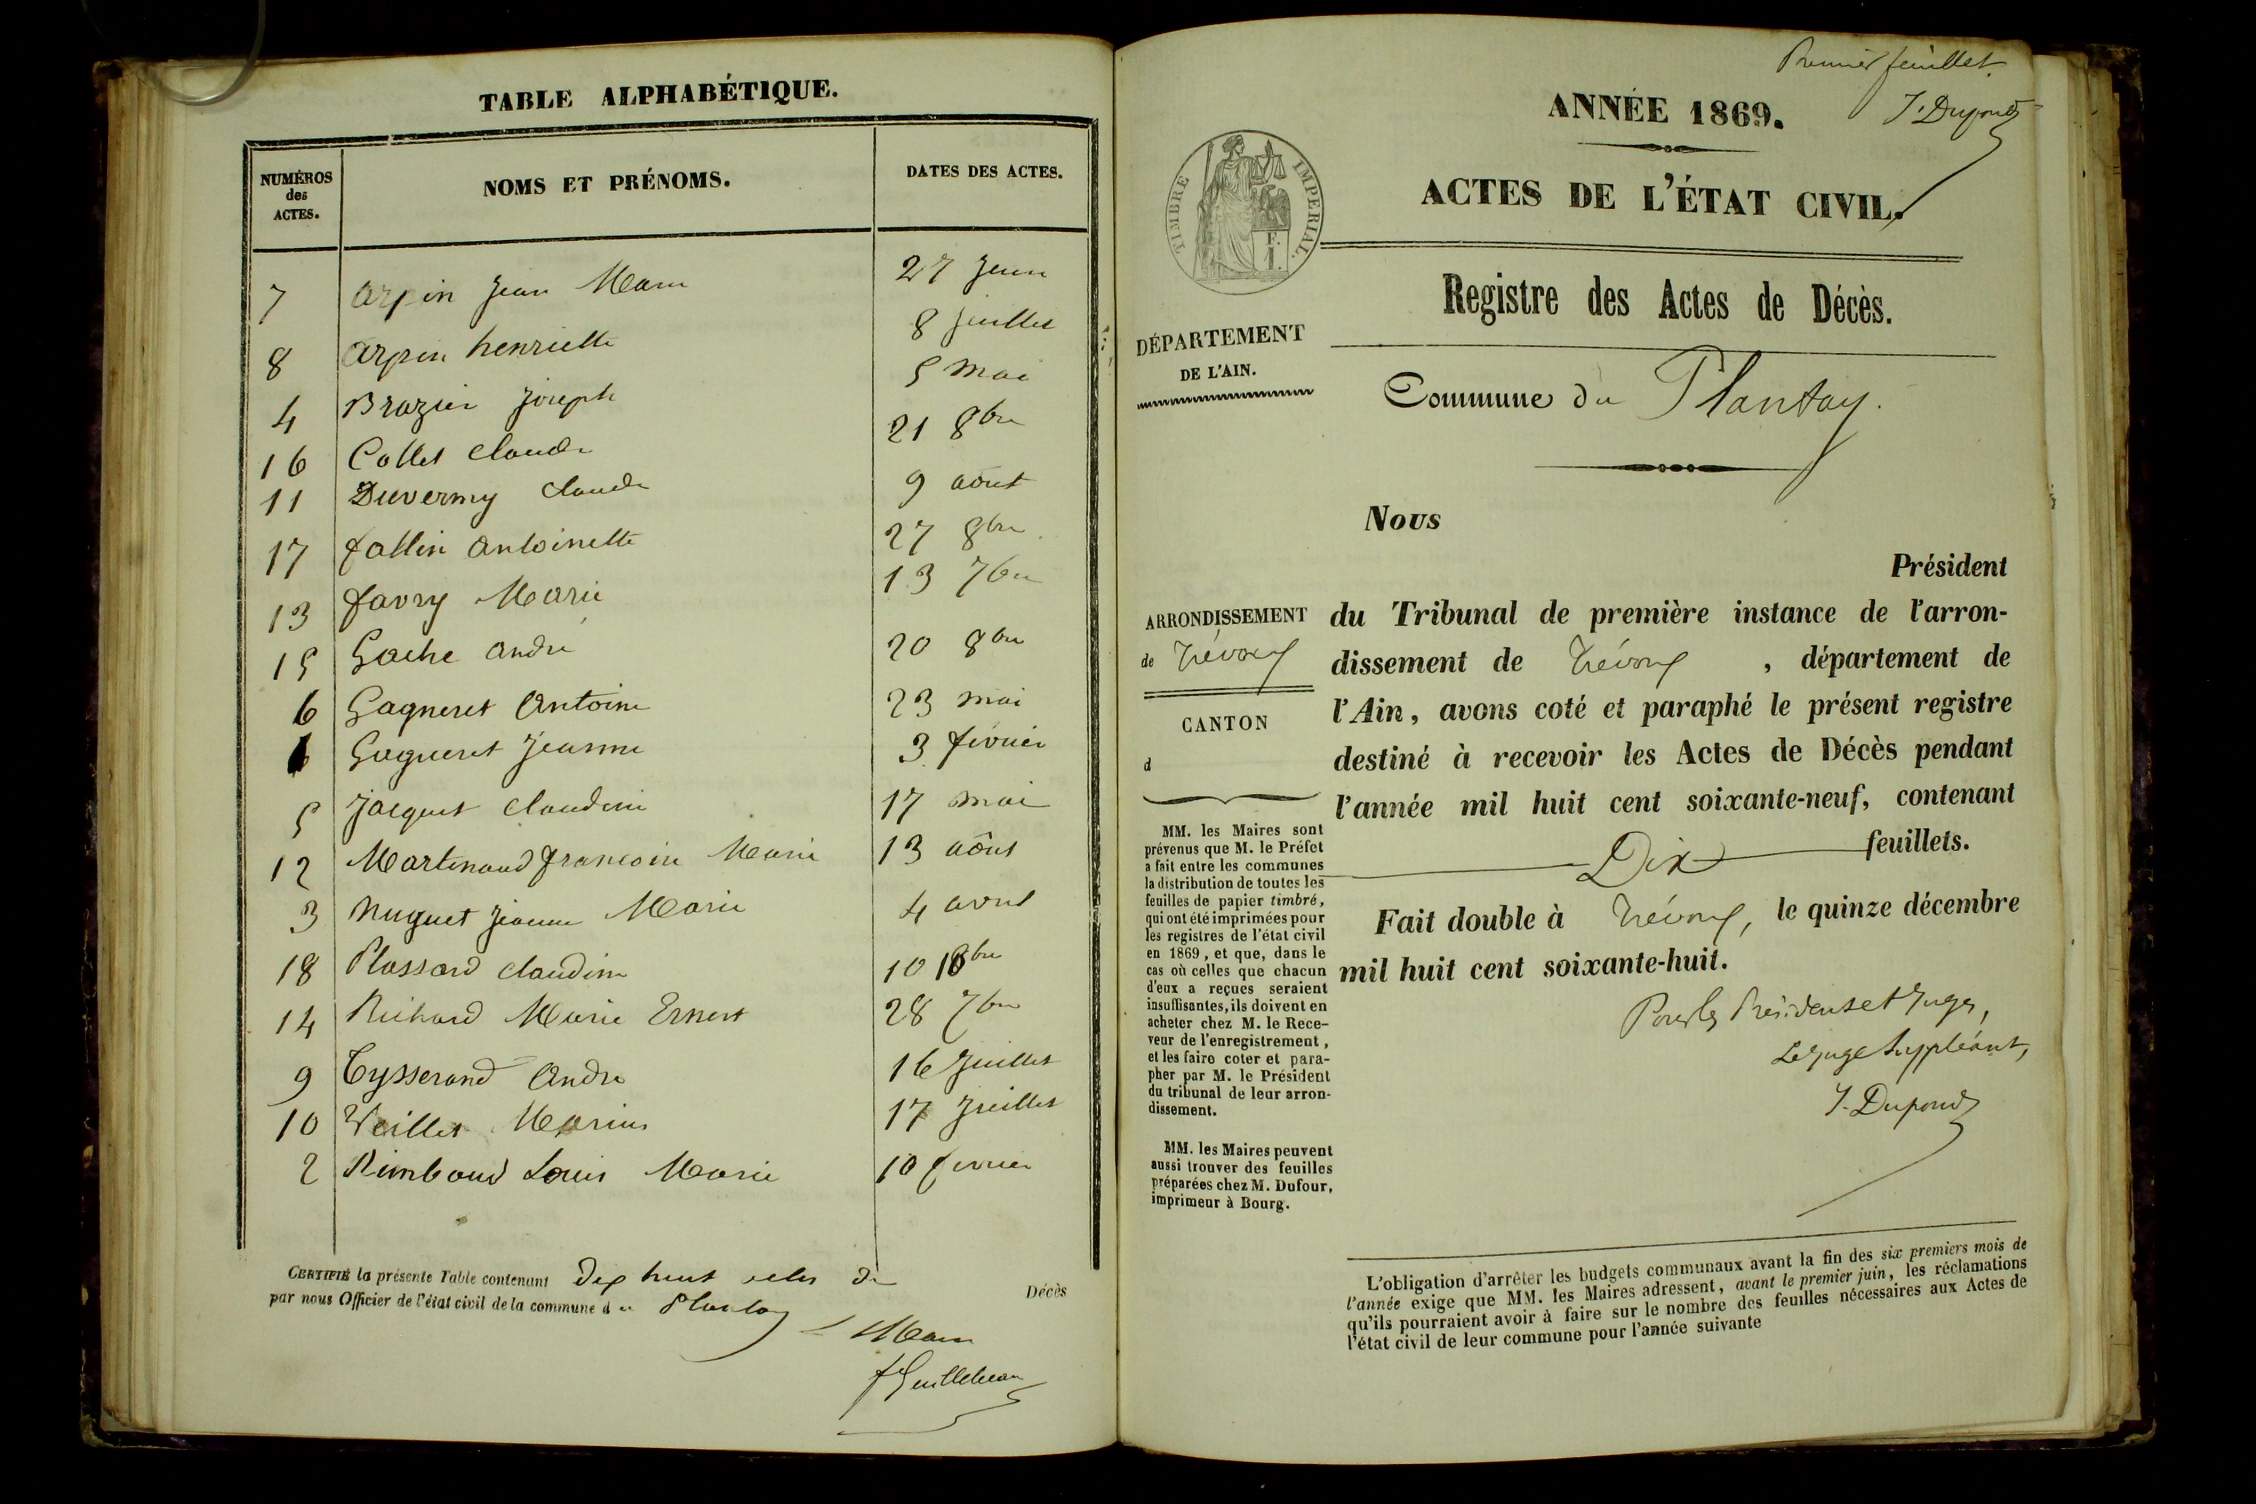 TABLE ALPHABÉTIQUE.
NUMÉROS des ACTES. NOMS ET PRÉNOMS. DATES DES ACTES.
7 Arpin Jean Marie 27 Juin
8 Arpin henriette 8 Juillet
4 Brazier Joseph 5 Mai
16 Collet Claude 21 8bre
11 Duvernay Claude 9 aout
17 fallin Antoinette 27 8bre
13 favry Marie 13 7bre
15 Gache André 20 8bre
6 Gagneret Antoine 23 mai
1 Gagneret Jeanne 3 février
5 Jacquet Claudine 17 mai
12 Martinand françoise Marie 13 août
3 Nuguet Jeanne Marie 4 avril
18 Plassard Claudine 10
14 Richard Marie Ernest 28 7bre
9 Tysserand André 16 Juillet
10 Veillet Marius 17 Juillet
2 Rimbaud Louis Marie 10 février
CERTIFIÉ la présente Table contenant Dix huit actes de Décès
par nous Officier de l'état civil de la commune du Plantay
Le Maire
Premier feuillet.
J. Dupond
ANNÉE 1869.
ACTES DE L'ÉTAT CIVIL.
TIMBRE IMPERIAL.
F. I.
Registre des Actes de Décès.
DÉPARTEMENT
DE L'AIN.
Commune du Plantay.
Nous
Président
ARRONDISSEMENT
de Trévoux
CANTON
d
du Tribunal de première instance de l'arron-
dissement de Trévoux, département de
l'Ain, avons coté et paraphé le présent registre
destiné à recevoir les Actes de Décès pendant
l'année mil huit cent soixante-neuf, contenant
Dix feuillets.
Fait double à Trévoux, le quinze décembre
mil huit cent soixante-huit.
Pour les Présidents et Juges,
Le Juge Suppléant,
J. Dupond
MM. les Maires sont
prévenus que M. le Préfet
a fait entre les communes
la distribution de toutes les
feuilles de papier timbré,
qui ont été imprimées pour
les registres de l'état civil
en 1869, et que, dans le
cas où celles que chacun
d'eux a reçues seraient
insuffisantes, ils doivent en
acheter chez M. le Rece-
veur de l'enregistrement,
et les faire coter et para-
pher par M. le Président
du tribunal de leur arron-
dissement.
MM. les Maires peuvent
aussi trouver des feuilles
préparées chez M. Dufour,
imprimeur à Bourg.
L'obligation d'arrêter les budgets communaux avant la fin des six premiers mois de
l'année exige que MM. les Maires adressent, avant le premier juin, les réclamations
qu'ils pourraient avoir à faire sur le nombre des feuilles nécessaires aux Actes de
l'état civil de leur commune pour l'année suivante